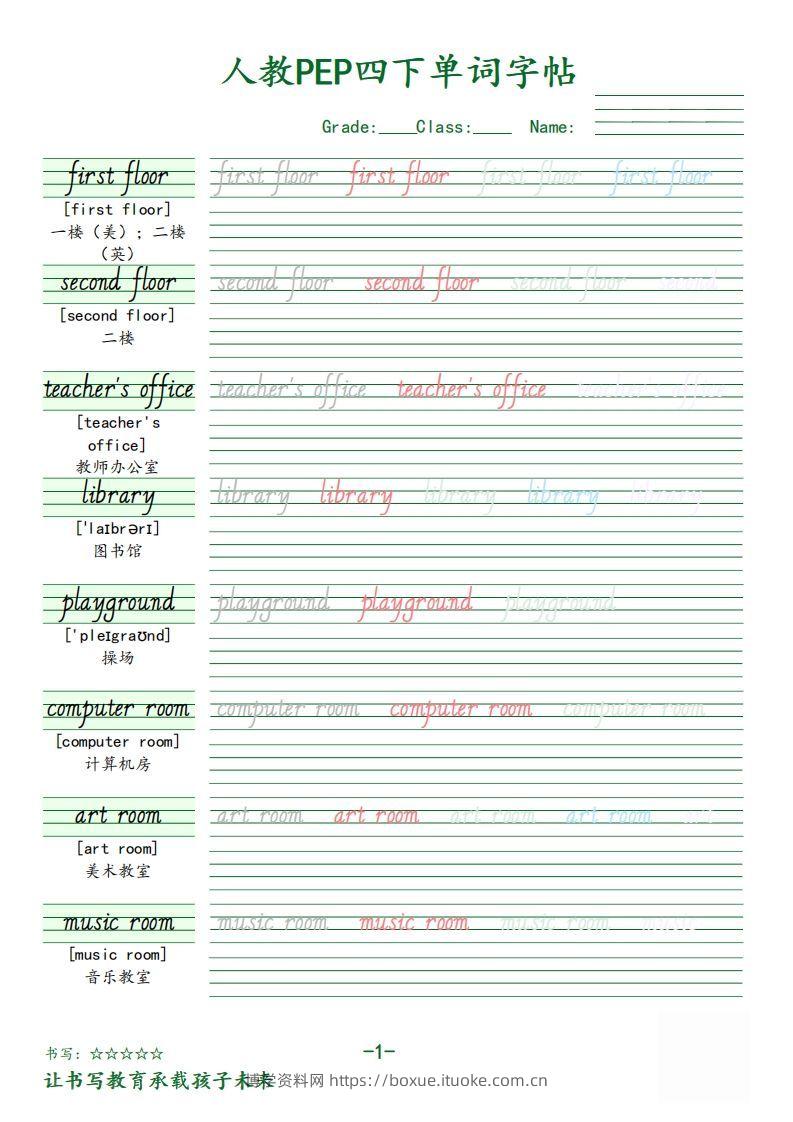 人教PEP四下单词字帖
Grade:____Class:____ Name:
first floor first floor first floor first floor first floor
[first floor]
一楼（美）；二楼
（英）
second floor second floor second floor second floor second
[second floor]
二楼
teacher's office teacher's office teacher's office teacher's office
[teacher's
office]
教师办公室
library library library library library library
['laɪbrərɪ]
图书馆
playground playground playground playground
['pleɪgraʊnd]
操场
computer room computer room computer room computer room
[computer room]
计算机房
art room art room art room art room art room art
[art room]
美术教室
music room music room music room music room music
[music room]
音乐教室
书写：☆☆☆☆☆
-1-
让书写教育承载孩子未来
博学资料网 https://boxue.ituoke.com.cn